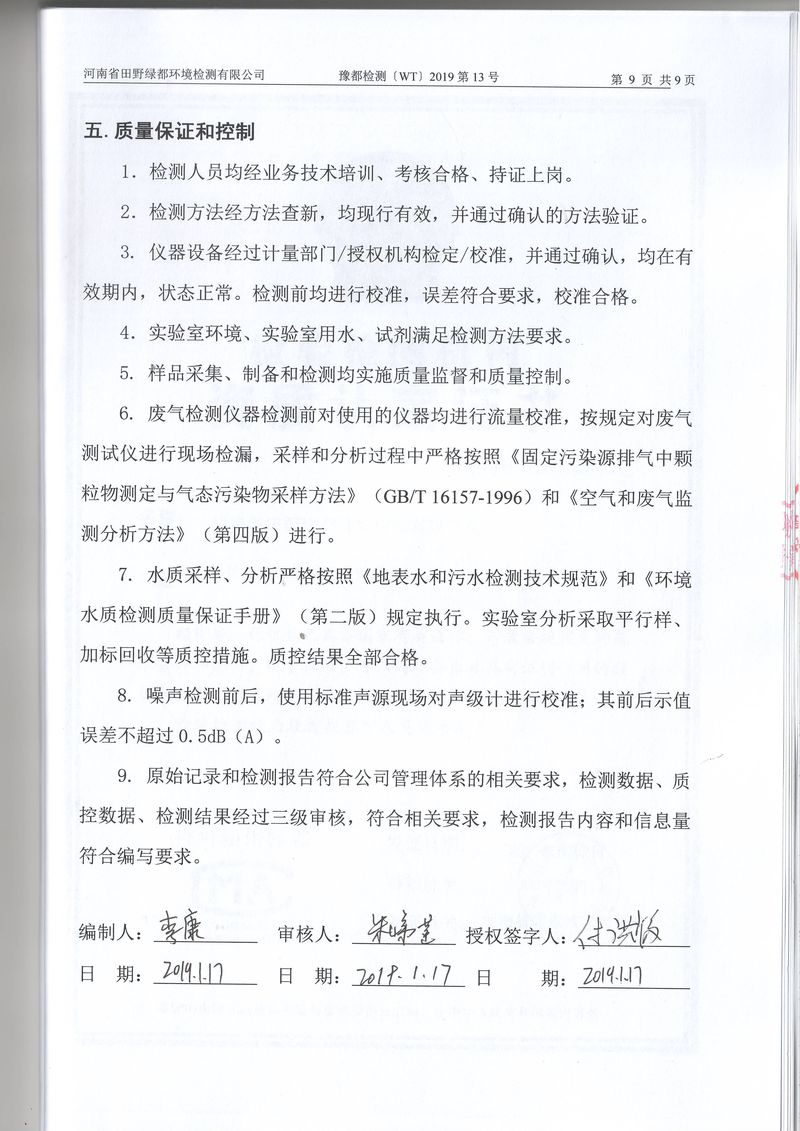 河南省田野绿都环境检测有限公司 豫都检测〔WT〕2019 第 13 号 第 9 页 共 9 页
五. 质量保证和控制
1. 检测人员均经业务技术培训、考核合格、持证上岗。
2. 检测方法经方法查新，均现行有效，并通过确认的方法验证。
3. 仪器设备经过计量部门/授权机构检定/校准，并通过确认，均在有
效期内，状态正常。检测前均进行校准，误差符合要求，校准合格。
4. 实验室环境、实验室用水、试剂满足检测方法要求。
5. 样品采集、制备和检测均实施质量监督和质量控制。
6. 废气检测仪器检测前对使用的仪器均进行流量校准，按规定对废气
测试仪进行现场检漏，采样和分析过程中严格按照《固定污染源排气中颗
粒物测定与气态污染物采样方法》（GB/T 16157-1996）和《空气和废气监
测分析方法》（第四版）进行。
7. 水质采样、分析严格按照《地表水和污水检测技术规范》和《环境
水质检测质量保证手册》（第二版）规定执行。实验室分析采取平行样、
加标回收等质控措施。质控结果全部合格。
8. 噪声检测前后，使用标准声源现场对声级计进行校准；其前后示值
误差不超过 0.5dB（A）。
9. 原始记录和检测报告符合公司管理体系的相关要求，检测数据、质
控数据、检测结果经过三级审核，符合相关要求，检测报告内容和信息量
符合编写要求。
编制人：李康 审核人： 授权签字人：
日 期：2019.1.17 日 期：2019.1.17 日 期：2019.1.17